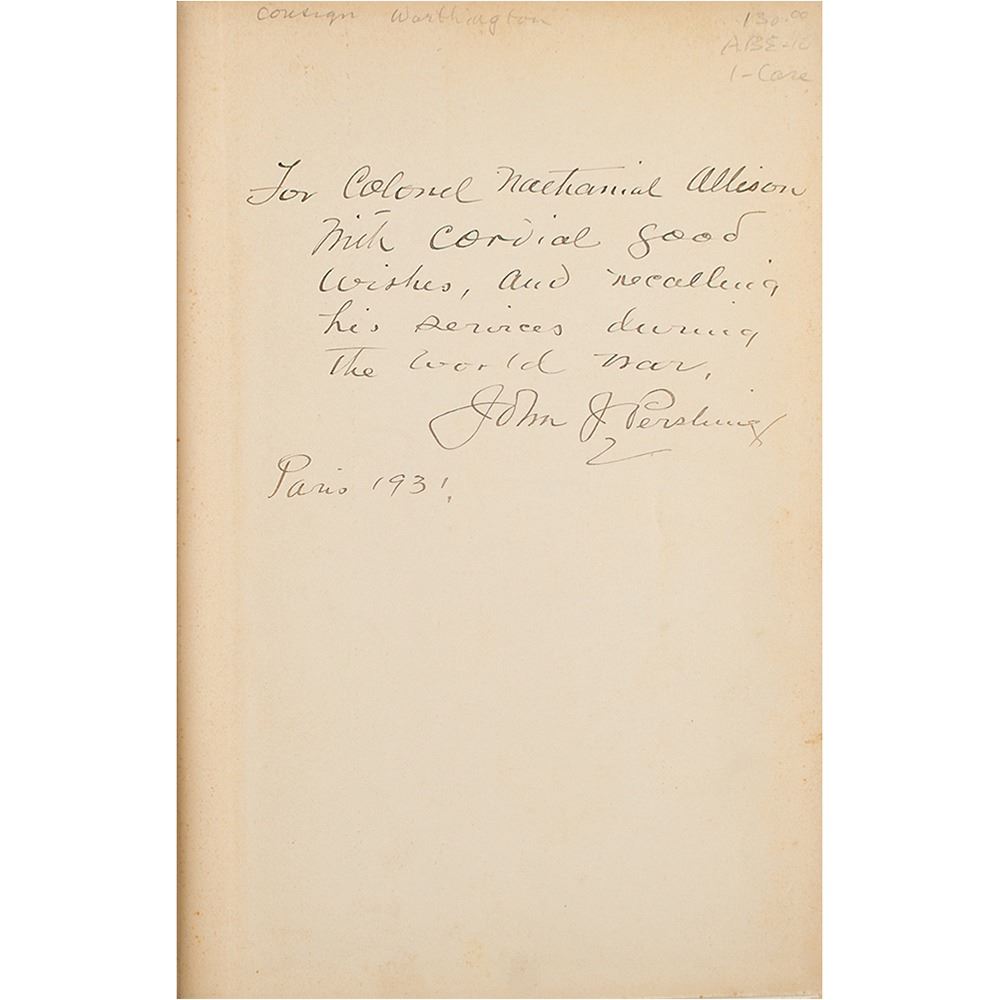 consign Worthington
130.00
ABE-
1-Case
For Colonel Nathanial Allison
With cordial good
wishes, and recalling
his services during
the World War.
John J Pershing
Paris 1931.